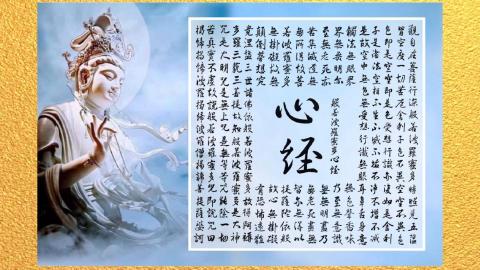 心經
般若波羅蜜多心經
觀自在菩薩行深般若波羅蜜多時照見五蘊
皆空度一切苦厄舍利子色不異空空不異色
色即是空空即是色受想行識亦復如是舍利
子是諸法空相不生不滅不垢不淨不增不減
是故空中無色無受想行識無眼耳鼻舌身意
無色聲香味
觸法無眼界
乃至無意識
界無無明亦
無無明盡乃
至無老死亦
無老死盡無
苦集滅道無
智亦無得以
無所得故菩
提薩埵依般
若波羅蜜多
故心無掛礙
無掛礙故無
有恐怖遠離
顛倒夢想究
竟涅盤三世諸佛依般若波羅蜜多故得阿耨
多羅三藐三菩提故知般若波羅蜜多是大神
咒是大明咒是無上咒是無等等咒能除一切
苦真實不虛故說般若波羅蜜多咒即說咒曰
揭諦揭諦波羅揭諦波羅僧揭諦菩提薩婆訶